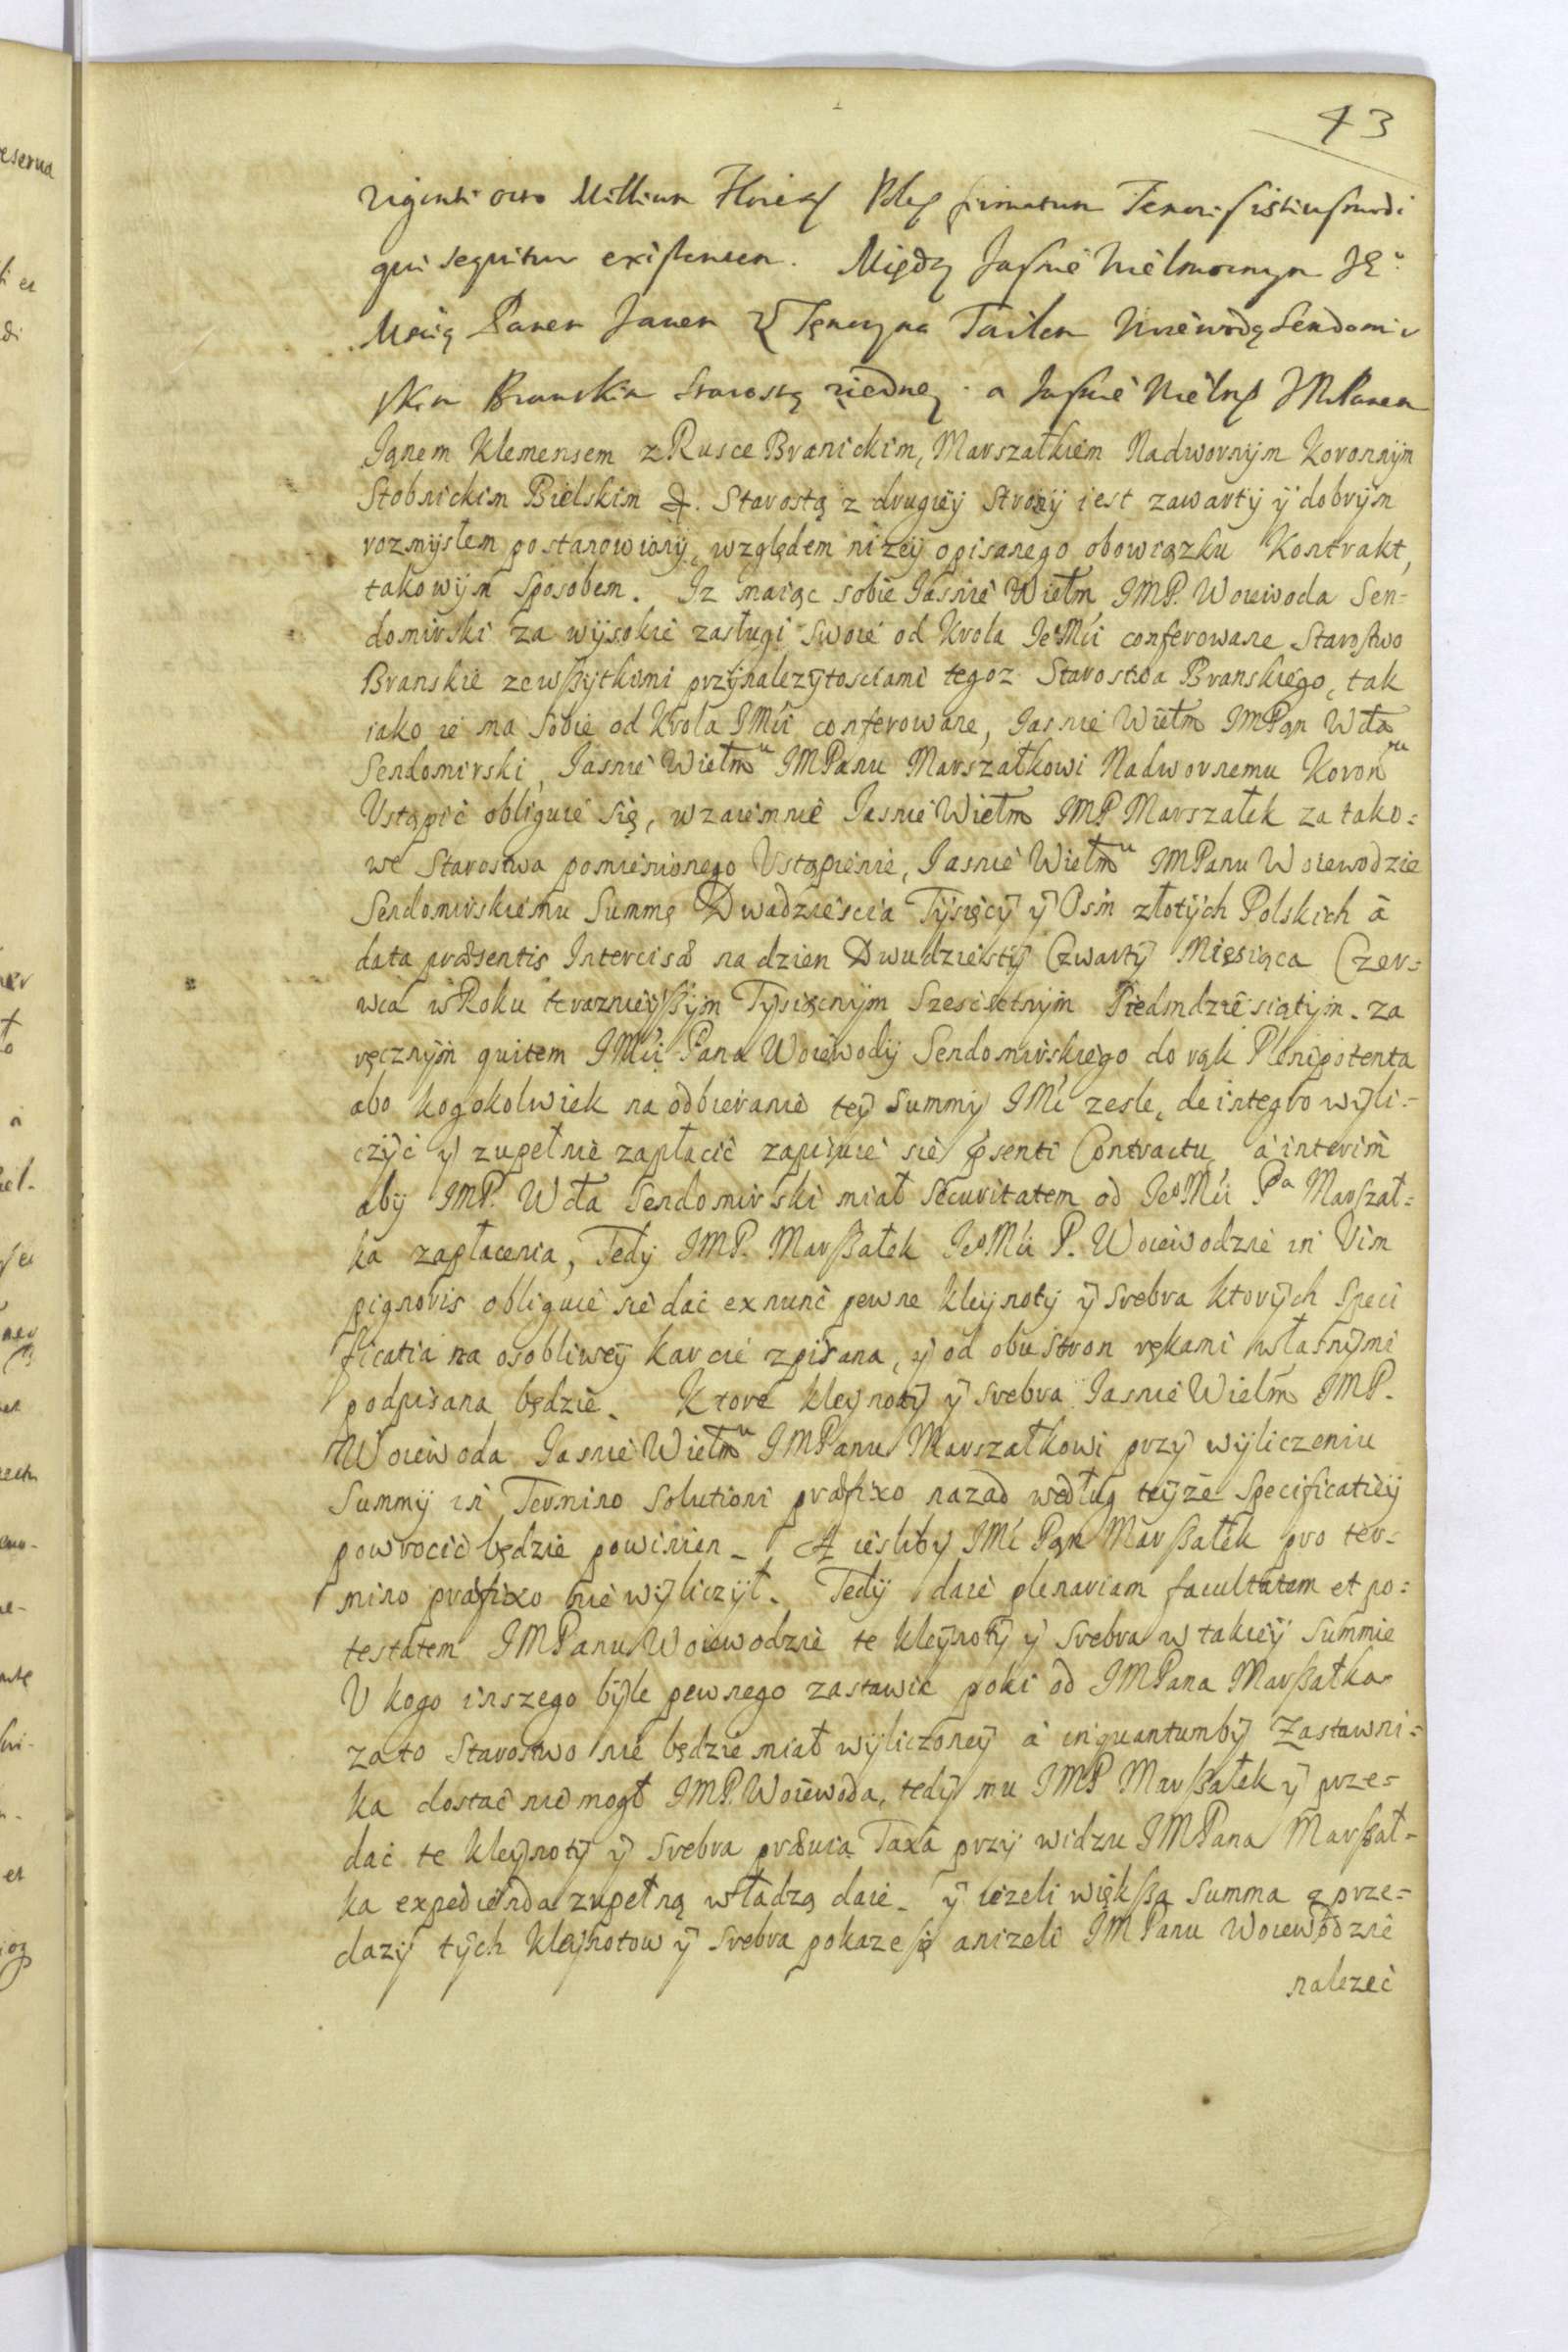 43
viginti octo Millium Floren Polo firmatum Tenoris istiusmodi
qui sequitur existencem. Między Jasnie Wielmoznym JE°
Mcią Panem Janem Z Tęnczyna Wdą Woiewodą Sendomir
skim Branskim Starostą ziedney a Jasnie Wielm JMPanem
Janem Klemensem z Rusce Branickim, Marszałkiem Nadwornym Koronnym
Stobnickim Bielskim &. Starostą z drugiey strony iest zawarty y dobrym
rozmysłem postanowiony, względem nizey opisanego obowiązku Kontrakt,
takowym sposobem. Iz maiąc sobie Iasnie Wielm IMP. Woiewoda Sen=
domirski za wysokie zasługi swoie od Krola IeMci conferowane Starostwo
Branskie zewszytkimi przynalezytosciami tegoz Starostwa Branskiego, tak
iako ie ma sobie od Krola IMci conferowane, Iasnie Wielm IMPan Wda
Sendomirski, Iasnie Wielmu IMPanu Marszałkowi Nadwornemu Koronmu
Ustąpić obliguie się, wzaiemnie Iasnie Wielm IMP Marszałek za tako=
we Starostwa pomienionego Ustąpienie, Iasnie Wielmu IMPanu Woiewodzie
Sendomirskiemu Summę Dwadziescia Tysięcy y Osm złotych Polskich à
data præsentis Intercisæ na dzien Dwudziesty Czwarty Miesiąca Czer=
wca w Roku terazniejszym Tysiącnym Szescsetnym Siedmdziesiątym. za
ręcznym quitem IMci Pana Woiewody Sendomirskiego do rąk Plenipotenta
abo kogokolwiek na odbieranie tey Summy IMć zesle, de integro wyli=
czyć y zupełnie zapłacić zapisuie sie psenti Contractu, à interim
aby IMP. Wda Sendomirski miał securitatem od IeoMci Pa Marszał=
ka zapłacenia, Tedy IMP. Marszałek IeoMci P. Woiewodzie in Vim
pignoris obliguie sie dać ex nunc pewne kleynoty y srebra ktorych speci
ficatia na osobliwey karcie zpisana, y od obu stron rękami własnymi
podpisana będzie. Ktore kleynoty y srebra Iasnie Wielm IMP.
Woiewoda Iasnie Wielmu IMPanu Marszałkowi przy wyliczeniu
Summy in Termino solutioni præfixo nazad według teyze Specificatiey
powrocic będzie powinien. A iesliby IMć Pan Marszałek pro ter=
mino præfixo nie wyliczył. Tedy daie plenariam facultatem et po=
testatem IMPanu Woiewodzie te kleynoty y srebra w takiey summie
U kogo inszego byle pewnego zastawić poki od IMPana Marszałka
za to Starostwo nie będzie miał wyliczoney à inquantumby Zastawni=
ka dostać nie mogł IMP. Woiewoda, tedy mu IMP Marszałek y prze=
dać te kleynoty y srebra prævia Taxa przy widzu IMPana Marszał=
ka expedienda zupełną władzą daie. y iezeli większa summa z prze=
dazy tych kleynotow y srebra pokaze się anizeli IMPanu Woiewodzie
nalezeć